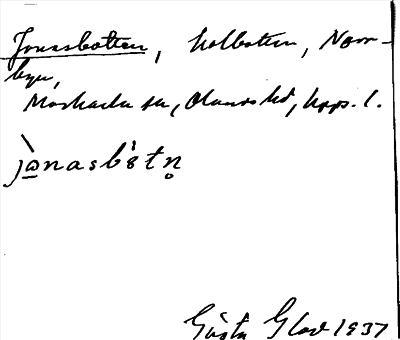 Jonasbotten, kolbotten, Norr-
byn,
Morkarla sn, Olands hd, Upps. l.
jònasbòtn̥
Gösta Glad 1937